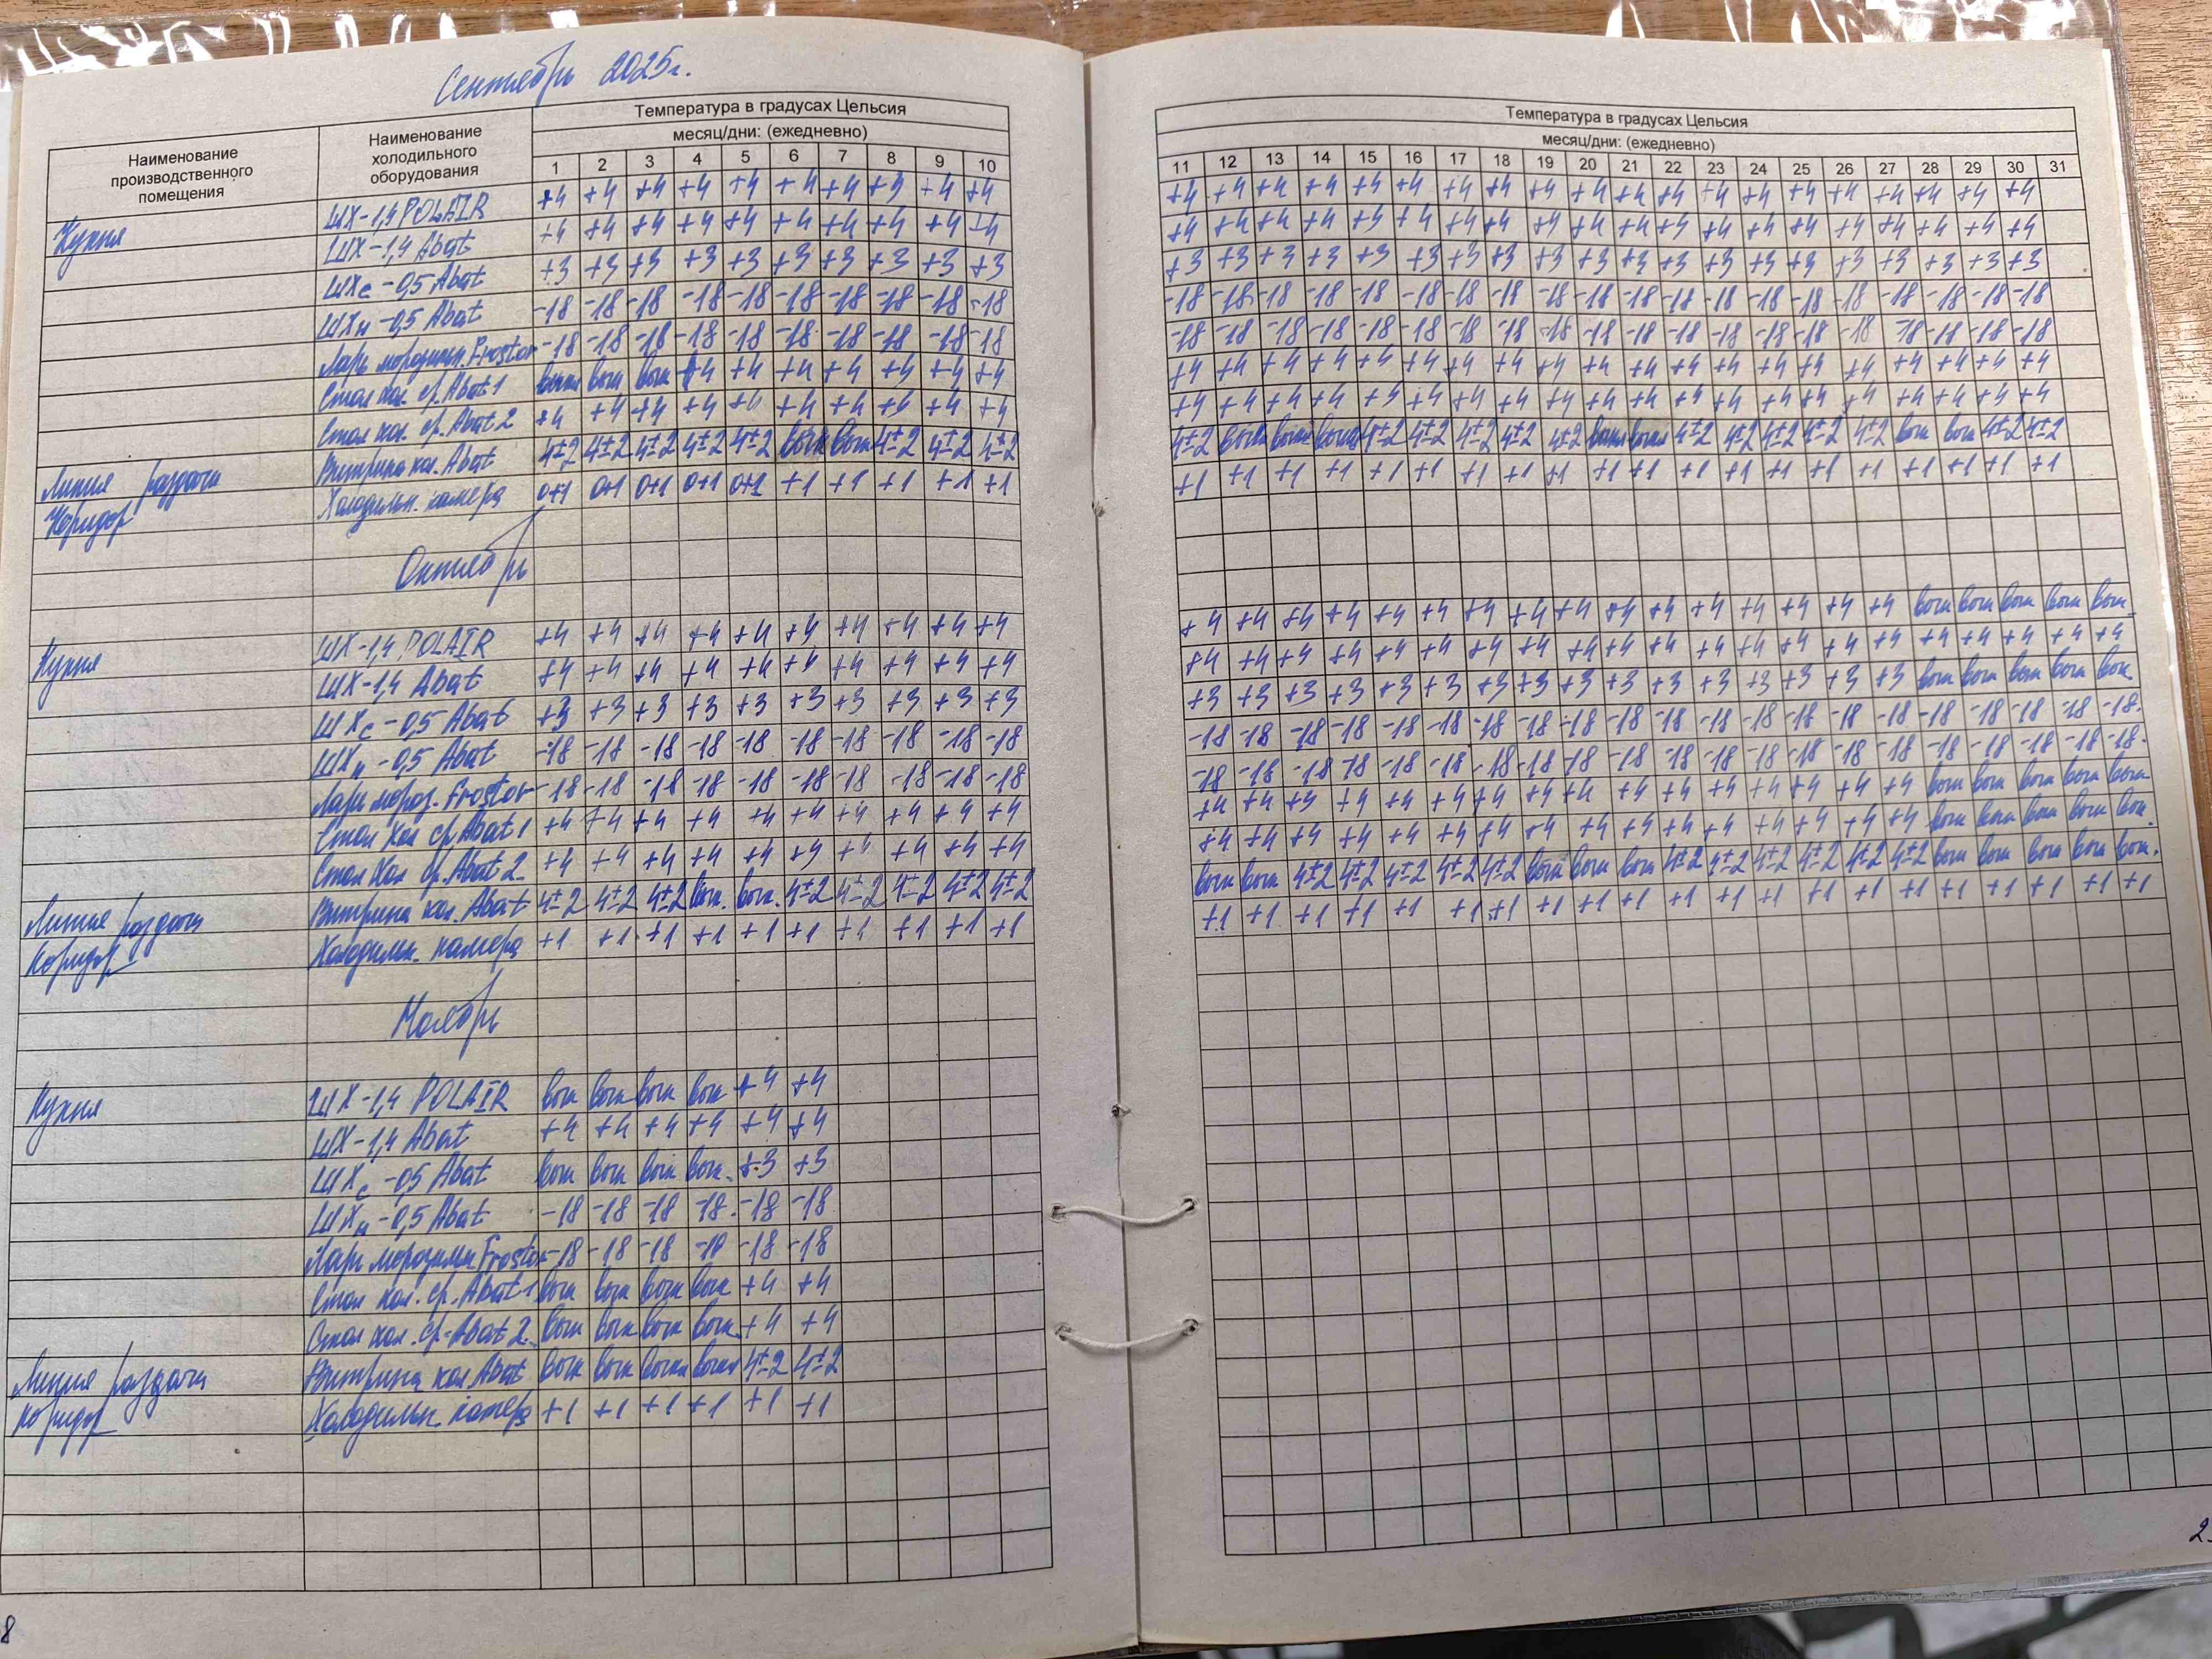 Сентябрь 2025г.
Наименование производственного помещения
Наименование холодильного оборудования
Температура в градусах Цельсия
месяц/дни: (ежедневно)
1 2 3 4 5 6 7 8 9 10
Кухня ШХ-1,4 POLAIR +4 +4 +4 +4 +4 +4 +4 +3 +4 +4
ШХ-1,4 Abat +4 +4 +4 +4 +4 +4 +4 +4 +4 +4
ШХс-0,5 Abat +3 +3 +3 +3 +3 +3 +3 +3 +3 +3
ШХн-0,5 Abat -18 -18 -18 -18 -18 -18 -18 -18 -18 -18
Ларь морозильн. Frostor -18 -18 -18 -18 -18 -18 -18 -18 -18 -18
Стол хол. ср. Abat 1 выкл выкл выкл +4 +4 +4 +4 +4 +4 +4
Стол хол. ср. Abat 2 +4 +4 +4 +4 +4 +4 +4 +4 +4 +4
Линия раздачи Витрина хол. Abat 4±2 4±2 4±2 4±2 4±2 выкл выкл 4±2 4±2 4±2
Коридор Холодильн. камера 0+1 0+1 0+1 0+1 0+1 +1 +1 +1 +1 +1
Октябрь
Кухня ШХ-1,4 POLAIR +4 +4 +4 +4 +4 +4 +4 +4 +4 +4
ШХ-1,4 Abat +4 +4 +4 +4 +4 +4 +4 +4 +4 +4
ШХс-0,5 Abat +3 +3 +3 +3 +3 +3 +3 +3 +3 +3
ШХн-0,5 Abat -18 -18 -18 -18 -18 -18 -18 -18 -18 -18
Ларь мороз. Frostor -18 -18 -18 -18 -18 -18 -18 -18 -18 -18
Стол хол ср Abat 1 +4 +4 +4 +4 +4 +4 +4 +4 +4 +4
Стол хол ср. Abat 2 +4 +4 +4 +4 +4 +4 +4 +4 +4 +4
Линия раздачи Витрина хол. Abat 4±2 4±2 4±2 выкл. выкл. 4±2 4±2 4±2 4±2 4±2
Коридор Холодильн. камера +1 +1 +1 +1 +1 +1 +1 +1 +1 +1
Ноябрь
Кухня ШХ-1,4 POLAIR выкл выкл выкл выкл +4 +4
ШХ-1,4 Abat +4 +4 +4 +4 +4 +4
ШХс-0,5 Abat выкл выкл выкл выкл. +3 +3
ШХн-0,5 Abat -18 -18 -18 -18 -18 -18
Ларь морозильн Frostor -18 -18 -18 -18 -18 -18
Стол хол. ср. Abat 1 выкл выкл выкл выкл +4 +4
Стол хол. ср. Abat 2 выкл выкл выкл выкл +4 +4
Линия раздачи Витрина хол. Abat выкл выкл выкл выкл 4±2 4±2
коридор Холодильн. камера +1 +1 +1 +1 +1 +1
8
Температура в градусах Цельсия
месяц/дни: (ежедневно)
11 12 13 14 15 16 17 18 19 20 21 22 23 24 25 26 27 28 29 30 31
+4 +4 +4 +4 +4 +4 +4 +4 +4 +4 +4 +4 +4 +4 +4 +4 +4 +4 +4 +4
+4 +4 +4 +4 +3 +4 +4 +4 +4 +4 +4 +4 +4 +4 +4 +4 +4 +4 +4 +4
+3 +3 +3 +3 +3 +3 +3 +3 +3 +3 +3 +3 +3 +3 +3 +3 +3 +3 +3 +3
-18 -18 -18 -18 -18 -18 -18 -18 -18 -18 -18 -18 -18 -18 -18 -18 -18 -18 -18 -18
-18 -18 -18 -18 -18 -18 -18 -18 -18 -18 -18 -18 -18 -18 -18 -18 -18 -18 -18 -18
+4 +4 +4 +4 +4 +4 +4 +4 +4 +4 +4 +4 +4 +4 +4 +4 +4 +4 +4 +4
+4 +4 +4 +4 +4 +4 +4 +4 +4 +4 +4 +4 +4 +4 +4 +4 +4 +4 +4 +4
4±2 выкл выкл выкл 4±2 4±2 4±2 4±2 4±2 выкл выкл 4±2 4±2 4±2 4±2 4±2 выкл выкл 4±2 4±2
+1 +1 +1 +1 +1 +1 +1 +1 +1 +1 +1 +1 +1 +1 +1 +1 +1 +1 +1 +1
+4 +4 +4 +4 +4 +4 +4 +4 +4 +4 +4 +4 +4 +4 +4 +4 выкл выкл выкл выкл выкл
+4 +4 +4 +4 +4 +4 +4 +4 +4 +4 +4 +4 +4 +4 +4 +4 +4 +4 +4 +4 +4
+3 +3 +3 +3 +3 +3 +3 +3 +3 +3 +3 +3 +3 +3 +3 +3 выкл выкл выкл выкл выкл
-18 -18 -18 -18 -18 -18 -18 -18 -18 -18 -18 -18 -18 -18 -18 -18 -18 -18 -18 -18 -18
-18 -18 -18 -18 -18 -18 -18 -18 -18 -18 -18 -18 -18 -18 -18 -18 -18 -18 -18 -18 -18
+4 +4 +4 +4 +4 +4 +4 +4 +4 +4 +4 +4 +4 +4 +4 +4 выкл выкл выкл выкл выкл
+4 +4 +4 +4 +4 +4 +4 +4 +4 +4 +4 +4 +4 +4 +4 +4 выкл выкл выкл выкл выкл.
выкл выкл 4±2 4±2 4±2 4±2 4±2 выкл выкл выкл 4±2 4±2 4±2 4±2 4±2 4±2 выкл выкл выкл выкл выкл.
+1 +1 +1 +1 +1 +1 +1 +1 +1 +1 +1 +1 +1 +1 +1 +1 +1 +1 +1 +1 +1